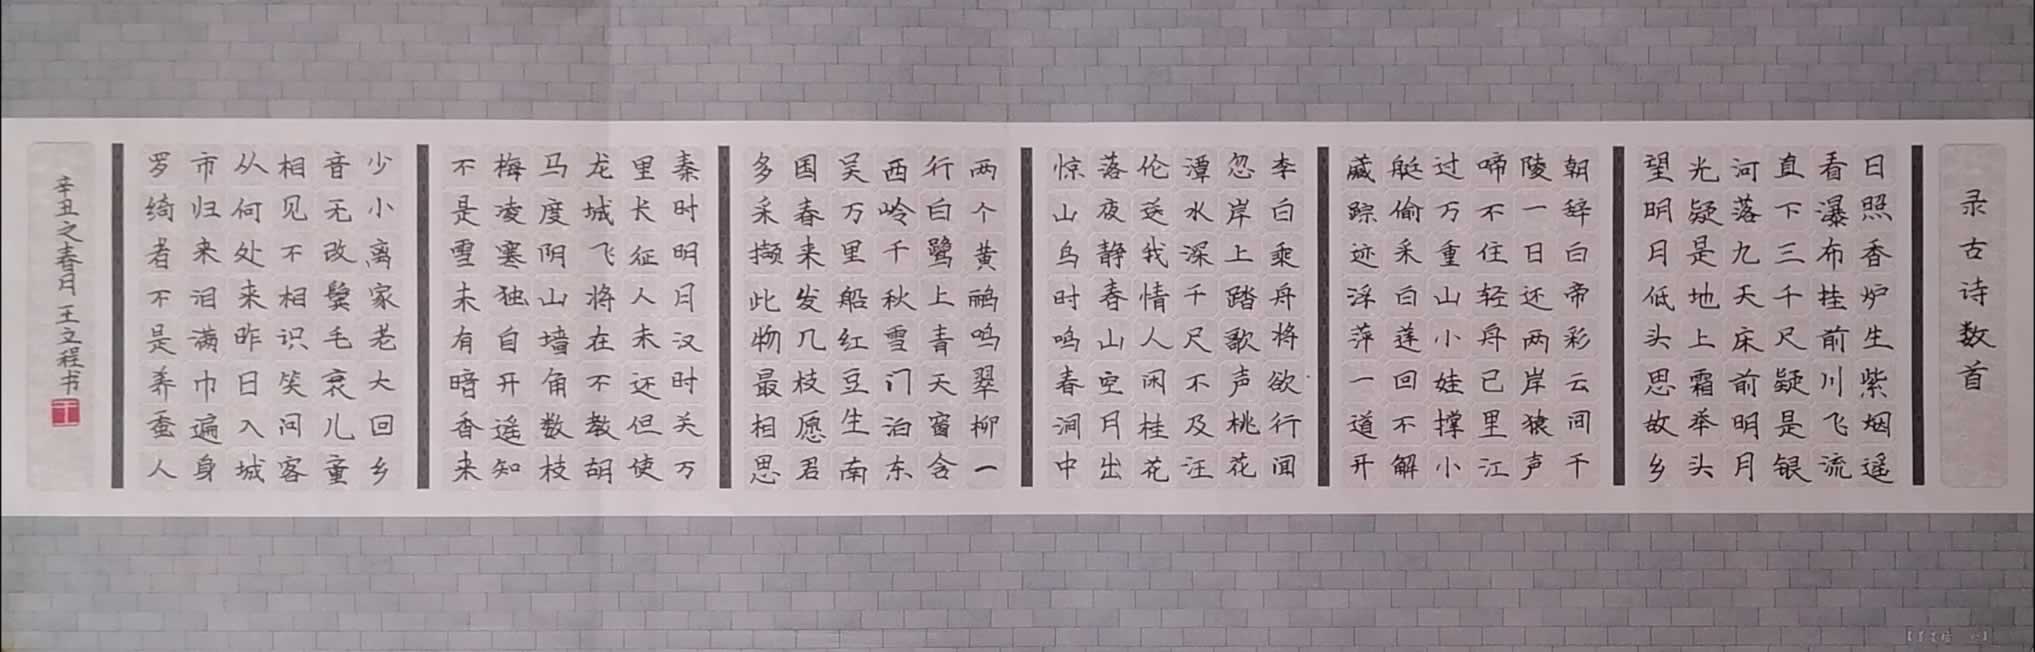 录古诗数首
日照香炉生紫烟遥
看瀑布挂前川飞流
直下三千尺疑是银
河落九天床前明月
光疑是地上霜举头
望明月低头思故乡
朝辞白帝彩云间千
陵一日还两岸猿声
啼不住轻舟已里江
过万重山小娃撑小
艇偷采白莲回不解
藏踪迹浮萍一道开
李白乘舟将欲行闻
忽岸上踏歌声桃花
潭水深千尺不及汪
伦送我情人闲桂花
落夜静春山空月出
惊山鸟时鸣春涧中
两个黄鹂鸣翠柳一
行白鹭上青天窗含
西岭千秋雪门泊东
吴万里船红豆生南
国春来发几枝愿君
多采撷此物最相思
秦时明月汉时关万
里长征人未还但使
龙城飞将在不教胡
马度阴山墙角数枝
梅凌寒独自开遥知
不是雪未有暗香来
少小离家老大回乡
音无改鬓毛衰儿童
相见不相识笑问客
从何处来昨日入城
市归来泪满巾遍身
罗绮者不是养蚕人
辛丑之春月王立程书